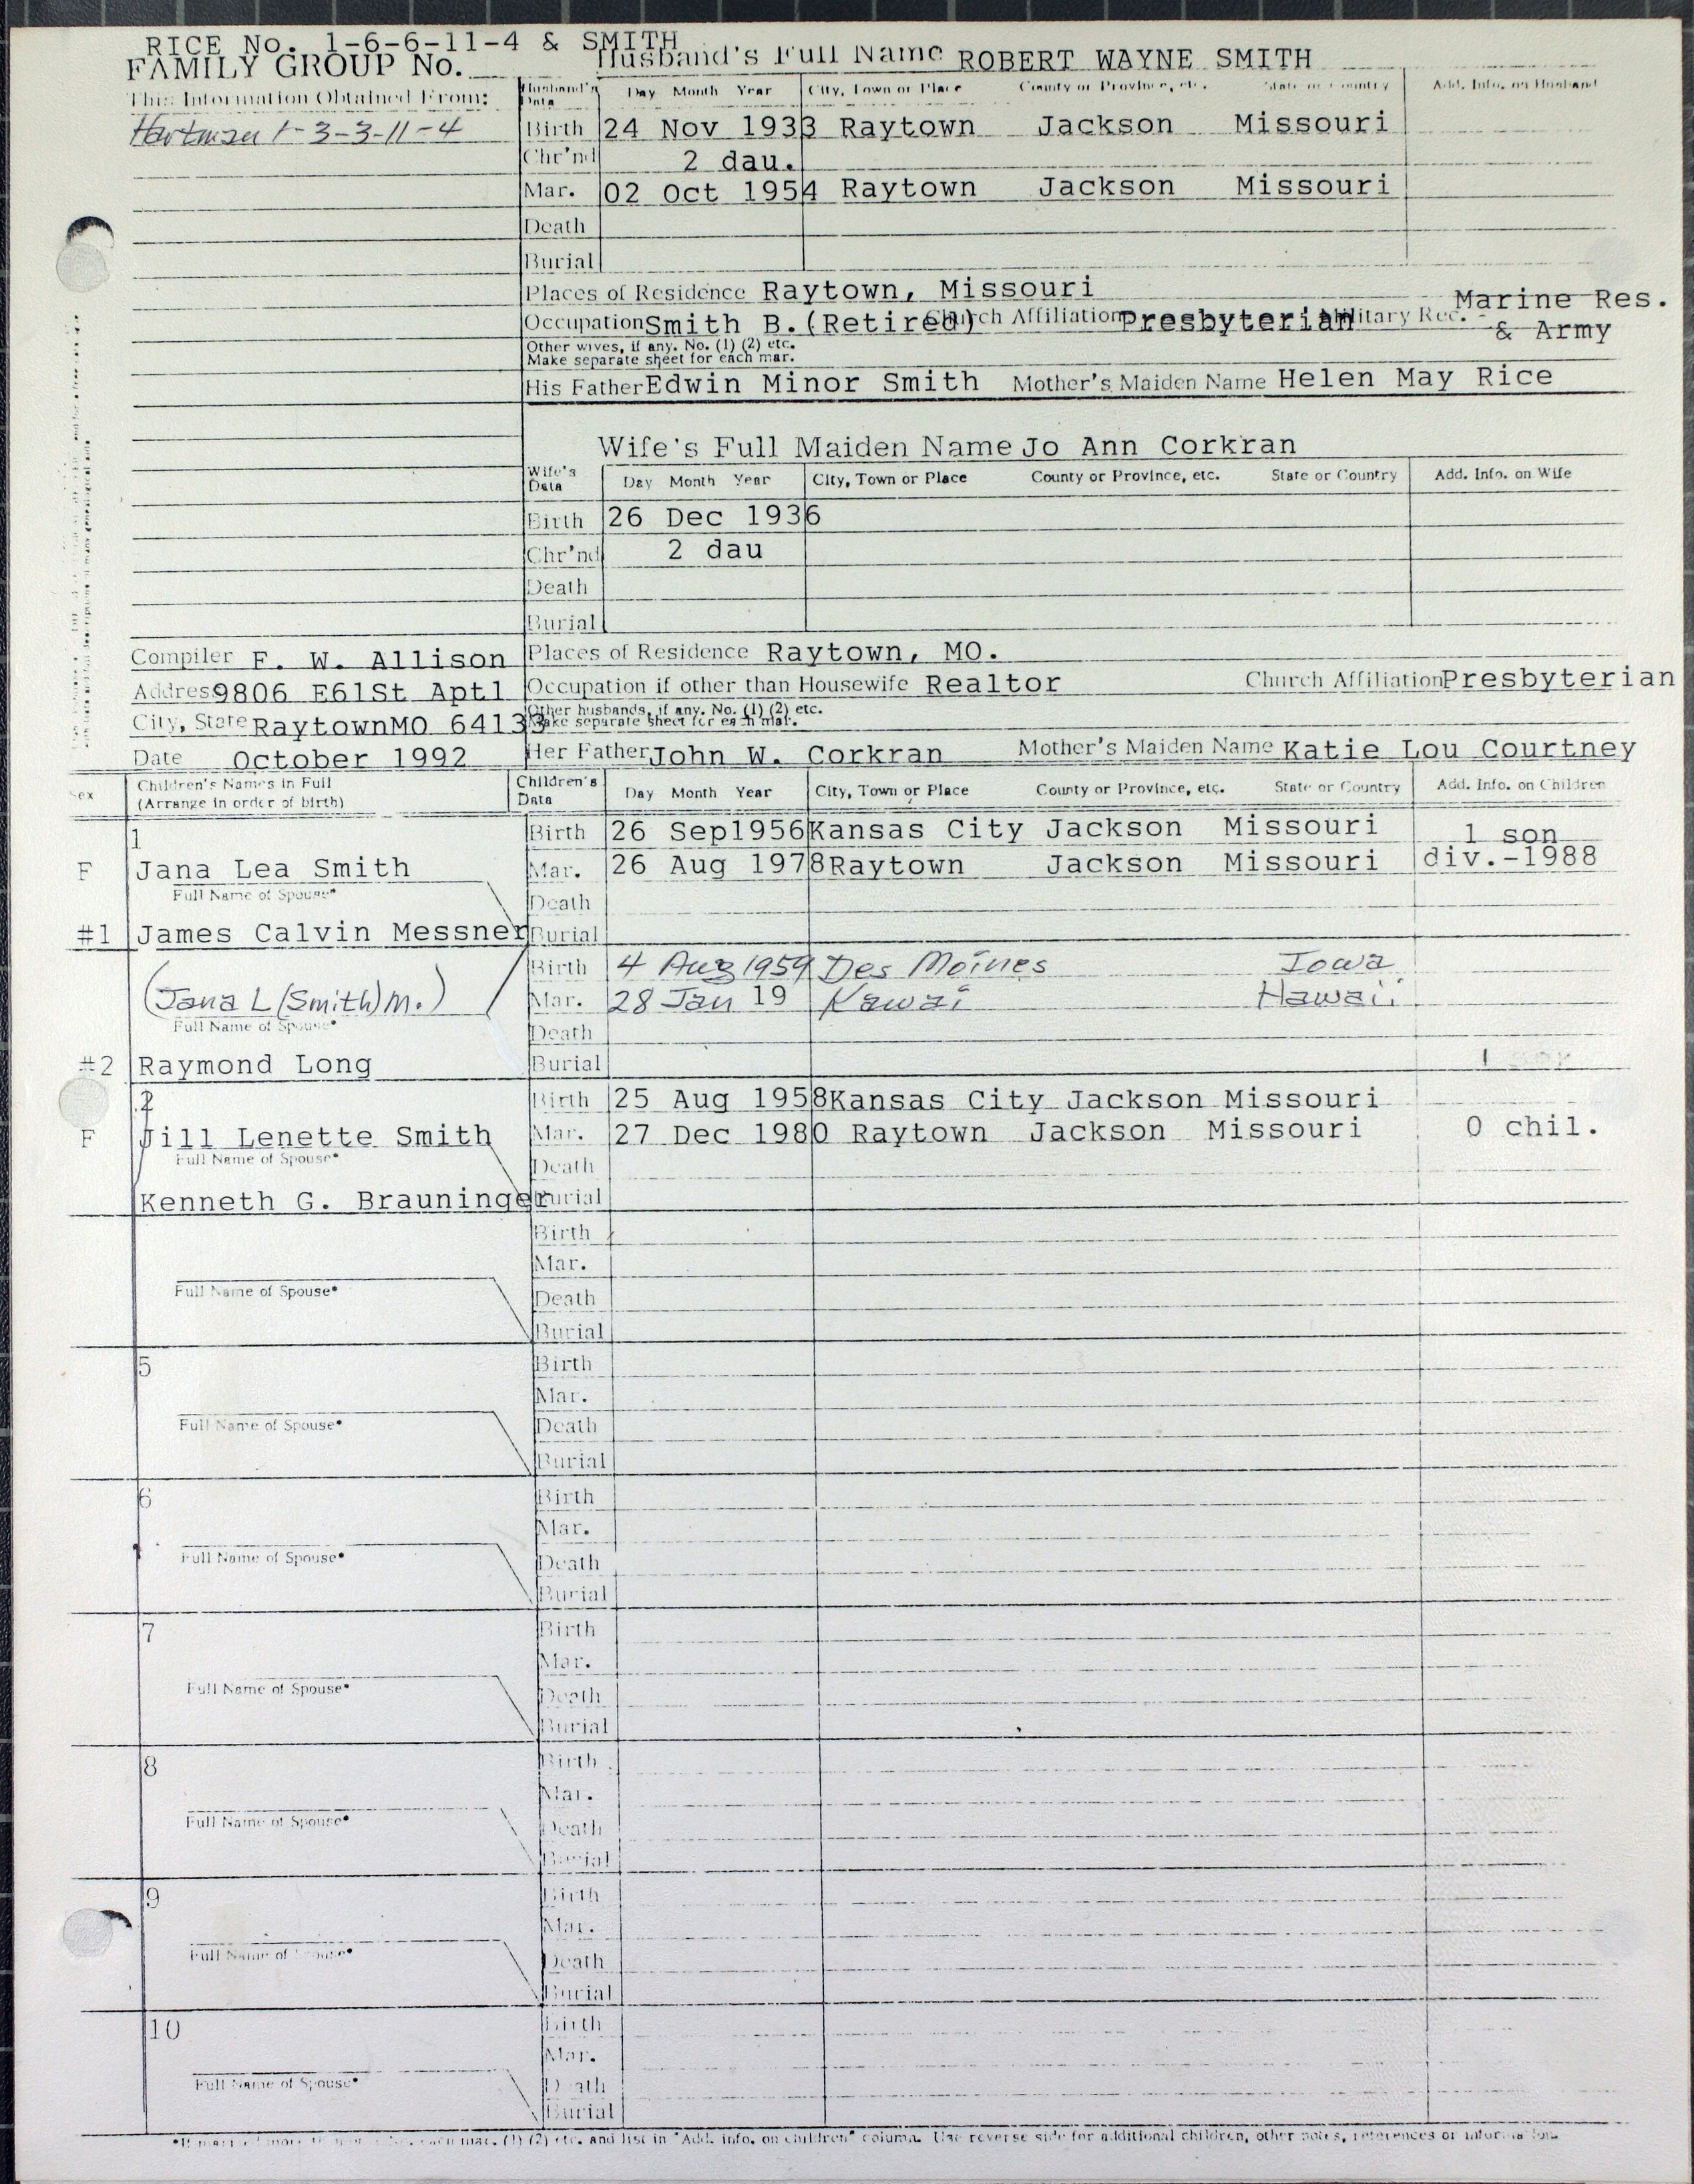 RICE No. 1-6-6-11-4 & SMITH
FAMILY GROUP No.
Husband's Full Name ROBERT WAYNE SMITH
This Information Obtained From:
Hartman 1-3-3-11-4
Husband's Data Day Month Year City, Town or Place County or Province, etc. State or Country Add. Info. on Husband
Birth 24 Nov 1933 Raytown Jackson Missouri
Chr'nd 2 dau.
Mar. 02 Oct 1954 Raytown Jackson Missouri
Death
Burial
Places of Residence Raytown, Missouri
Occupation Smith B.(Retired) Church Affiliation Presbyterian Military Rec. Marine Res. & Army
Other wives, if any. No. (1) (2) etc.
Make separate sheet for each mar.
His Father Edwin Minor Smith Mother's Maiden Name Helen May Rice
Wife's Full Maiden Name Jo Ann Corkran
Wife's Data Day Month Year City, Town or Place County or Province, etc. State or Country Add. Info. on Wife
Birth 26 Dec 1936
Chr'nd 2 dau
Death
Burial
Compiler F. W. Allison
Address 9806 E61St Apt1
City, State RaytownMO 64133
Date October 1992
Places of Residence Raytown, MO.
Occupation if other than Housewife Realtor Church Affiliation Presbyterian
Other husbands, if any. No. (1) (2) etc.
Make separate sheet for each mar.
Her Father John W. Corkran Mother's Maiden Name Katie Lou Courtney
Sex Children's Names in Full (Arrange in order of birth) Children's Data Day Month Year City, Town or Place County or Province, etc. State or Country Add. Info. on Children
1
Birth 26 Sep1956 Kansas City Jackson Missouri 1 son
F Jana Lea Smith Mar. 26 Aug 1978 Raytown Jackson Missouri div.-1988
Full Name of Spouse*
Death
#1 James Calvin Messner Burial
Birth 4 Aug 1959 Des Moines Iowa
(Jana L (Smith) M.) Mar. 28 Jan 19 Kawai Hawaii
Full Name of Spouse*
Death
#2 Raymond Long Burial 1
2
Birth 25 Aug 1958 Kansas City Jackson Missouri
F Jill Lenette Smith Mar. 27 Dec 1980 Raytown Jackson Missouri 0 chil.
Full Name of Spouse*
Death
Kenneth G. Brauninger Burial
Birth
Mar.
Full Name of Spouse*
Death
Burial
5
Birth
Mar.
Full Name of Spouse*
Death
Burial
6
Birth
Mar.
Full Name of Spouse*
Death
Burial
7
Birth
Mar.
Full Name of Spouse*
Death
Burial
8
Birth
Mar.
Full Name of Spouse*
Death
Burial
9
Birth
Mar.
Full Name of Spouse*
Death
Burial
10
Birth
Mar.
Full Name of Spouse*
Death
Burial
*If married more than each mar. (1) (2) etc. and list in "Add. info. on children" column. Use reverse side for additional children, other notes, references or information.